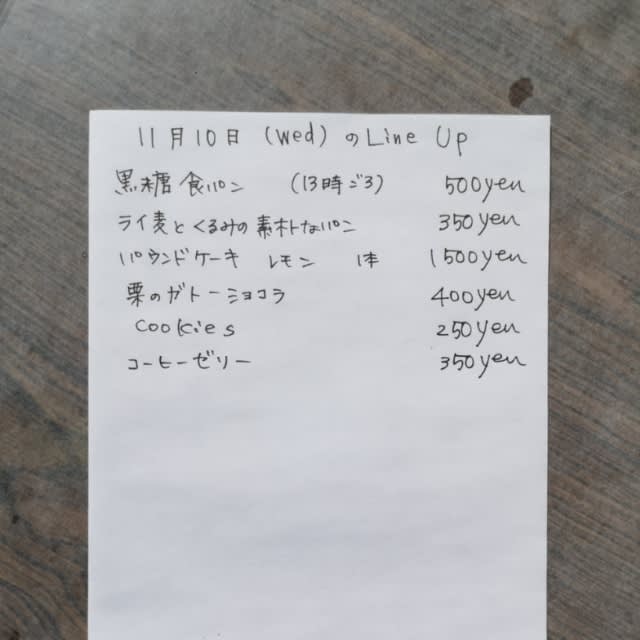 11月10日 (Wed) のLine Up
黒糖食パン (13時ごろ) 500yen
ライ麦とくるみの素朴なパン 350yen
パウンドケーキ レモン 1本 1500yen
栗のガトーショコラ 400yen
Cookies 250yen
コーヒーゼリー 350yen